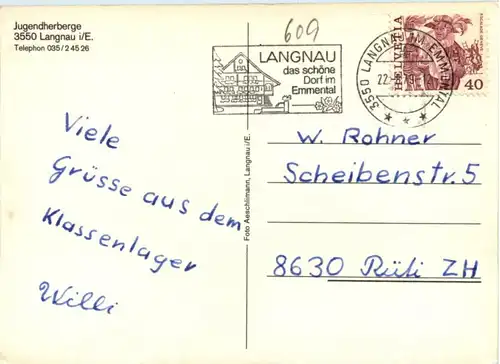 Jugendherberge
3550 Langnau i/E.
Telephon 035/2 45 26
609
LANGNAU
das schöne
Dorf im
Emmental
3550 LANGNAU IM EMMENTAL
HELVETIA
40
Viele
Grüsse aus dem
Klassenlager
Willi
Foto Aeschlimann, Langnau i/E.
W. Rohner
Scheibenstr. 5
8630 Rüti ZH